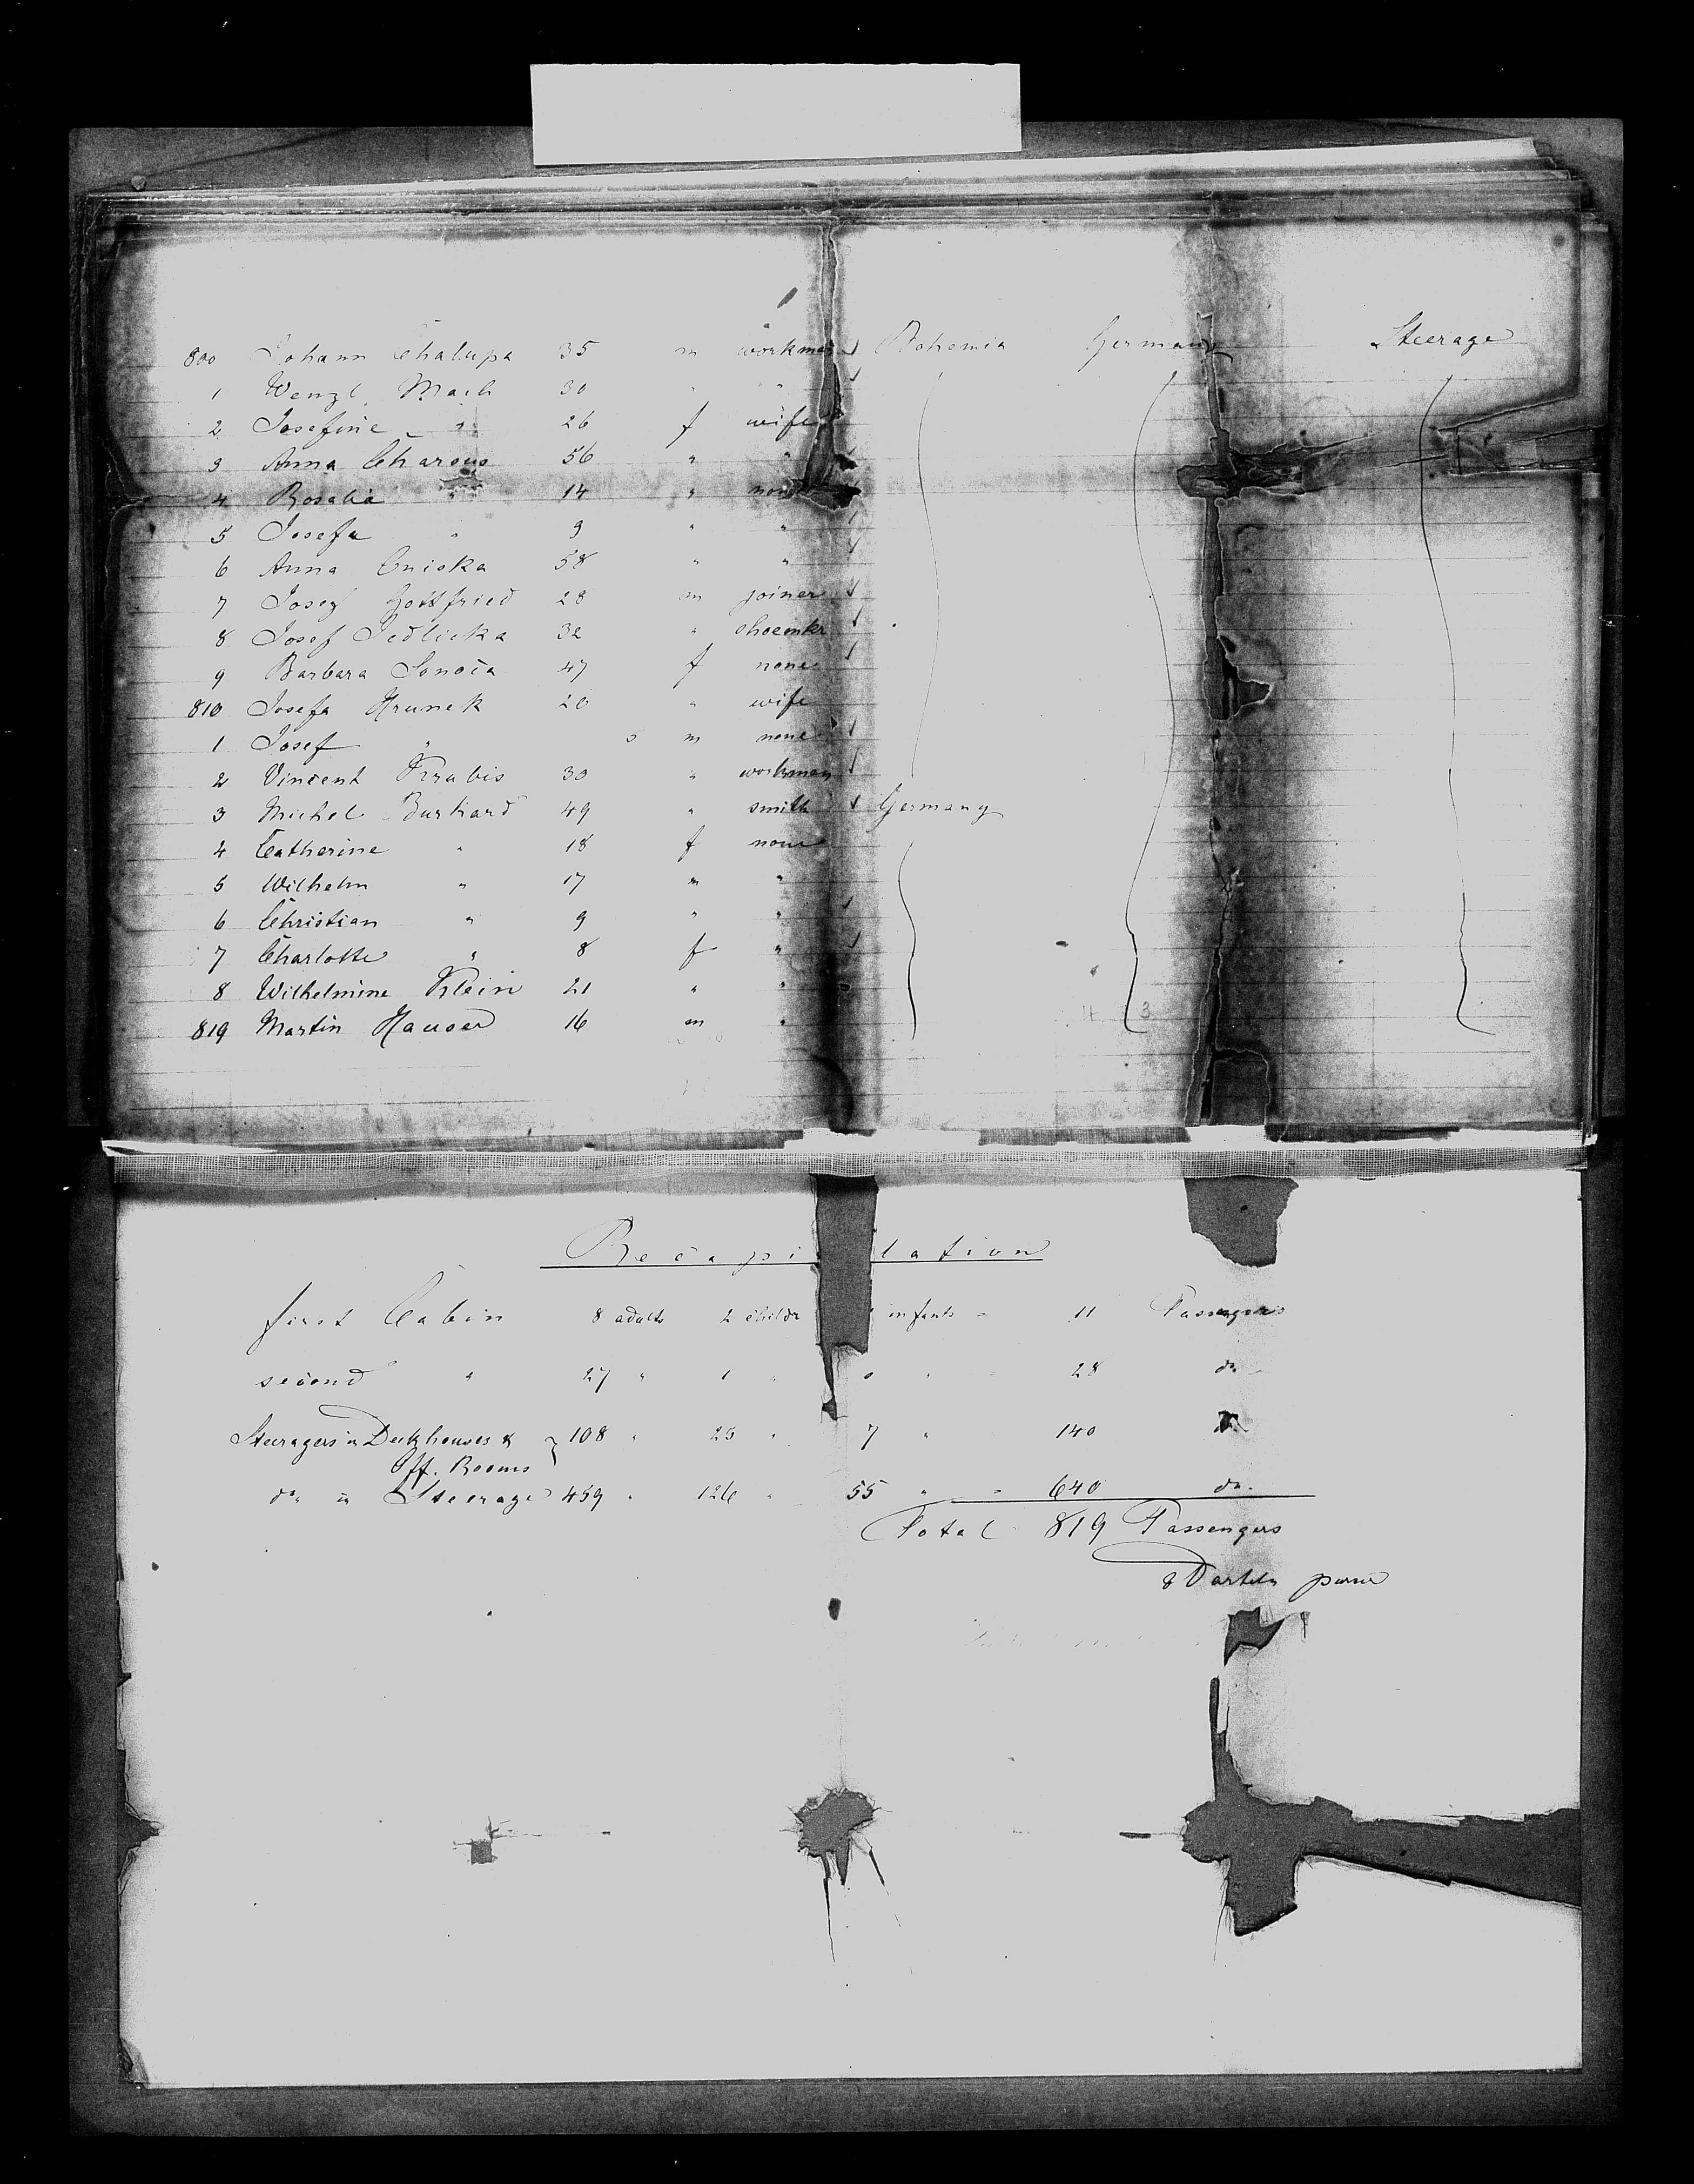 800 Johann Chalupa 35 m workman Bohemia Germany Steerage
1 Wenzl Mach 30 " "
2 Josefine " 26 f wife
3 Anna Charous 56 " "
4 Rosalia " 14 " none
5 Josefa " 9 " "
6 Anna 58 " "
7 Josef Gottfried 28 m joiner
8 Josef Jedlicka 32 " shoemkr
9 Barbara 47 f none
810 Josefa Hrunek 20 " wife
1 Josef " m none
2 Vincent Krabis 30 " workman
3 Michel Burkard 49 " smith Germany
4 Catherine " 18 f none
5 Wilhelm " 17 m "
6 Christian " 9 " "
7 Charlotte " 8 f "
8 Wilhelmine Klein 21 " "
819 Martin Hauser 16 m "
Recapi lation
first Cabin 8 adults 2 childr infants = 11 Passengers
second " 27 " 1 " 0 " = 28 do
Steeragers in Deckhouses & 108 " 25 " 7 " 140 do
Off. Rooms
do in Steerage 459 " 126 " 55 " = 640 do.
Total 819 Passengers
purser